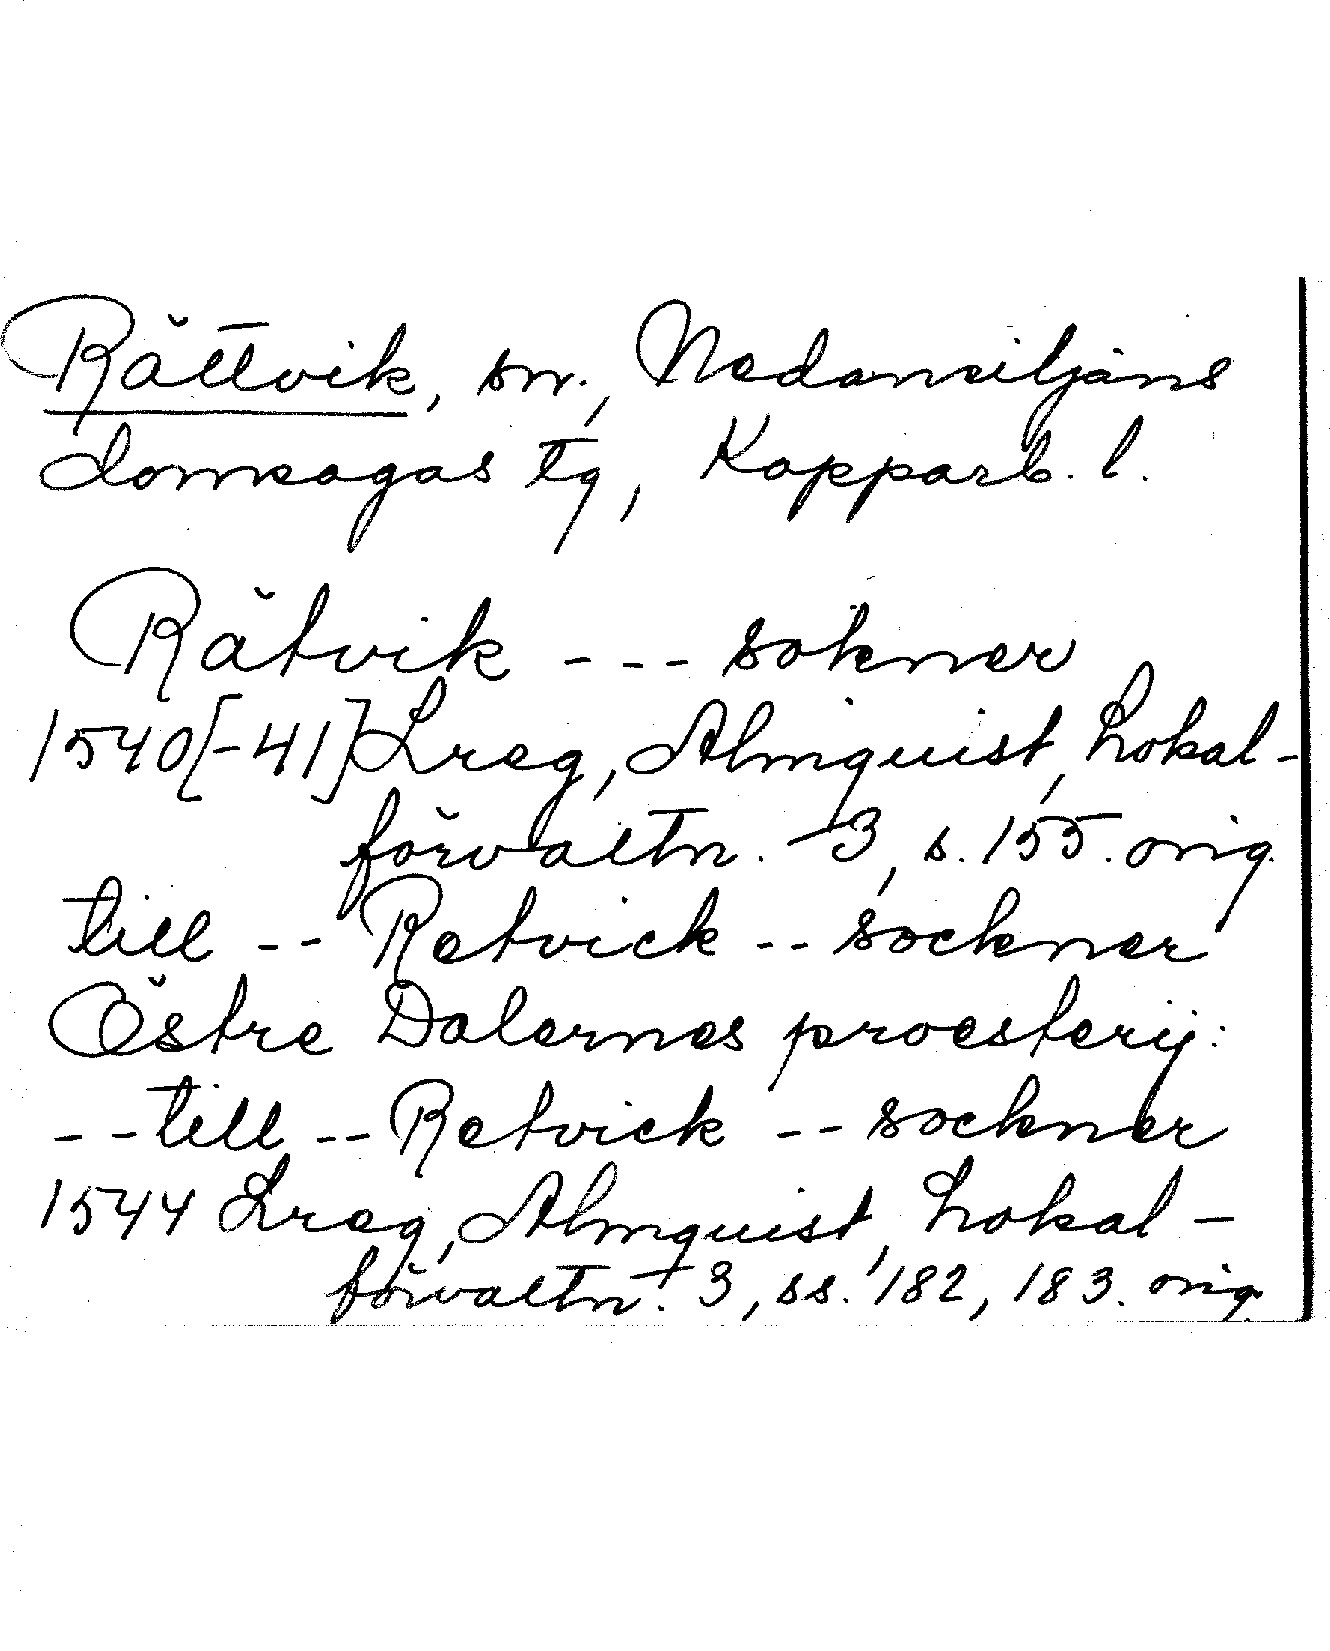 Rättvik, sn, Nedansiljans
domsagas tg, Kopparb. l.
Rätvik --- sokner
1540[-41] Lreg, Almquist, Lokal-
förvaltn. 3, s. 155. orig.
till -- Retvick -- sockner
Östre Dalernes proesterij:
-- till -- Retvick -- sockner
1544 Lreg, Almquist, Lokal-
förvaltn. 3, ss. 182, 183. orig.